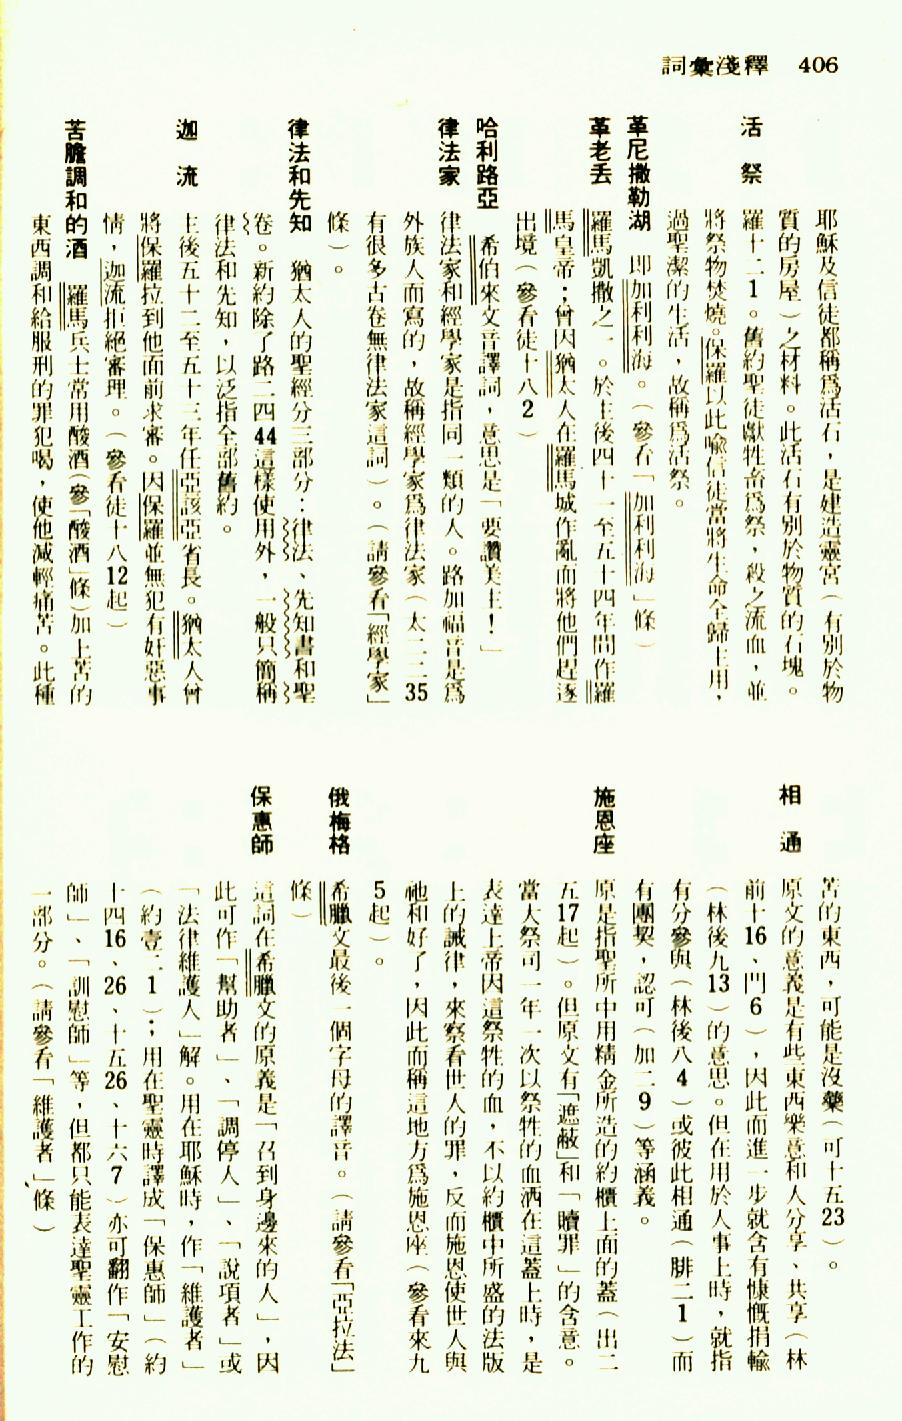 詞彙淺釋　406
耶穌及信徒都稱爲活石，是建造靈宮（有別於物
質的房屋）之材料。此活石有別於物質的石塊。
活　祭
羅十二1。舊約聖徒獻牲畜爲祭，殺之流血，並
將祭物焚燒。保羅以此喻信徒當將生命全歸主用，
過聖潔的生活，故稱爲活祭。
革尼撒勒湖　即加利利海。（參看「加利利海」條）
革老丟　羅馬凱撒之一。於主後四十一至五十四年間作羅
馬皇帝；曾因猶太人在羅馬城作亂而將他們趕逐
出境（參看徒十八2）
哈利路亞　希伯來文音譯詞，意思是「要讚美主！」
律法家　律法家和經學家是指同一類的人。路加福音是爲
外族人而寫的，故稱經學家爲律法家（太二二35
有很多古卷無律法家這詞）。（請參看「經學家」
條）。
律法和先知　猶太人的聖經分三部分：律法、先知書和聖
卷。新約除了路二四44這樣使用外，一般只簡稱
律法和先知，以泛指全部舊約。
迦　流　主後五十二至五十三年任亞該亞省長。猶太人曾
將保羅拉到他面前求審。因保羅並無犯有奸惡事
情，迦流拒絕審理。（參看徒十八12起）
苦膽調和的酒　羅馬兵士常用酸酒（參「酸酒」條）加上苦的
東西調和給服刑的罪犯喝，使他減輕痛苦。此種
苦的東西，可能是沒藥（可十五23）。
相　通　原文的意義是有些東西樂意和人分享、共享（林
前十16、門6），因此而進一步就含有慷慨捐輸
（林後九13）的意思。但在用於人事上時，就指
有分參與（林後八4）或彼此相通（腓二1）而
有團契，認可（加二9）等涵義。
施恩座　原是指聖所中用精金所造的約櫃上面的蓋（出二
五17起）。但原文有「遮蔽」和「贖罪」的含意。
當大祭司一年一次以祭牲的血洒在這蓋上時，是
表達上帝因這祭牲的血，不以約櫃中所盛的法版
上的誡律，來察看世人的罪，反而施恩使世人與
祂和好了，因此而稱這地方爲施恩座（參看來九
5起）。
俄梅格　希臘文最後一個字母的譯音。（請參看「亞拉法」
條）
保惠師　這詞在希臘文的原義是「召到身邊來的人」，因
此可作「幫助者」、「調停人」、「說項者」或
「法律維護人」解。用在耶穌時，作「維護者」
（約壹二1）；用在聖靈時譯成「保惠師」（約
十四16、26、十五26、十六7）亦可翻作「安慰
師」、「訓慰師」等，但都只能表達聖靈工作的
一部分。（請參看「維護者」條）